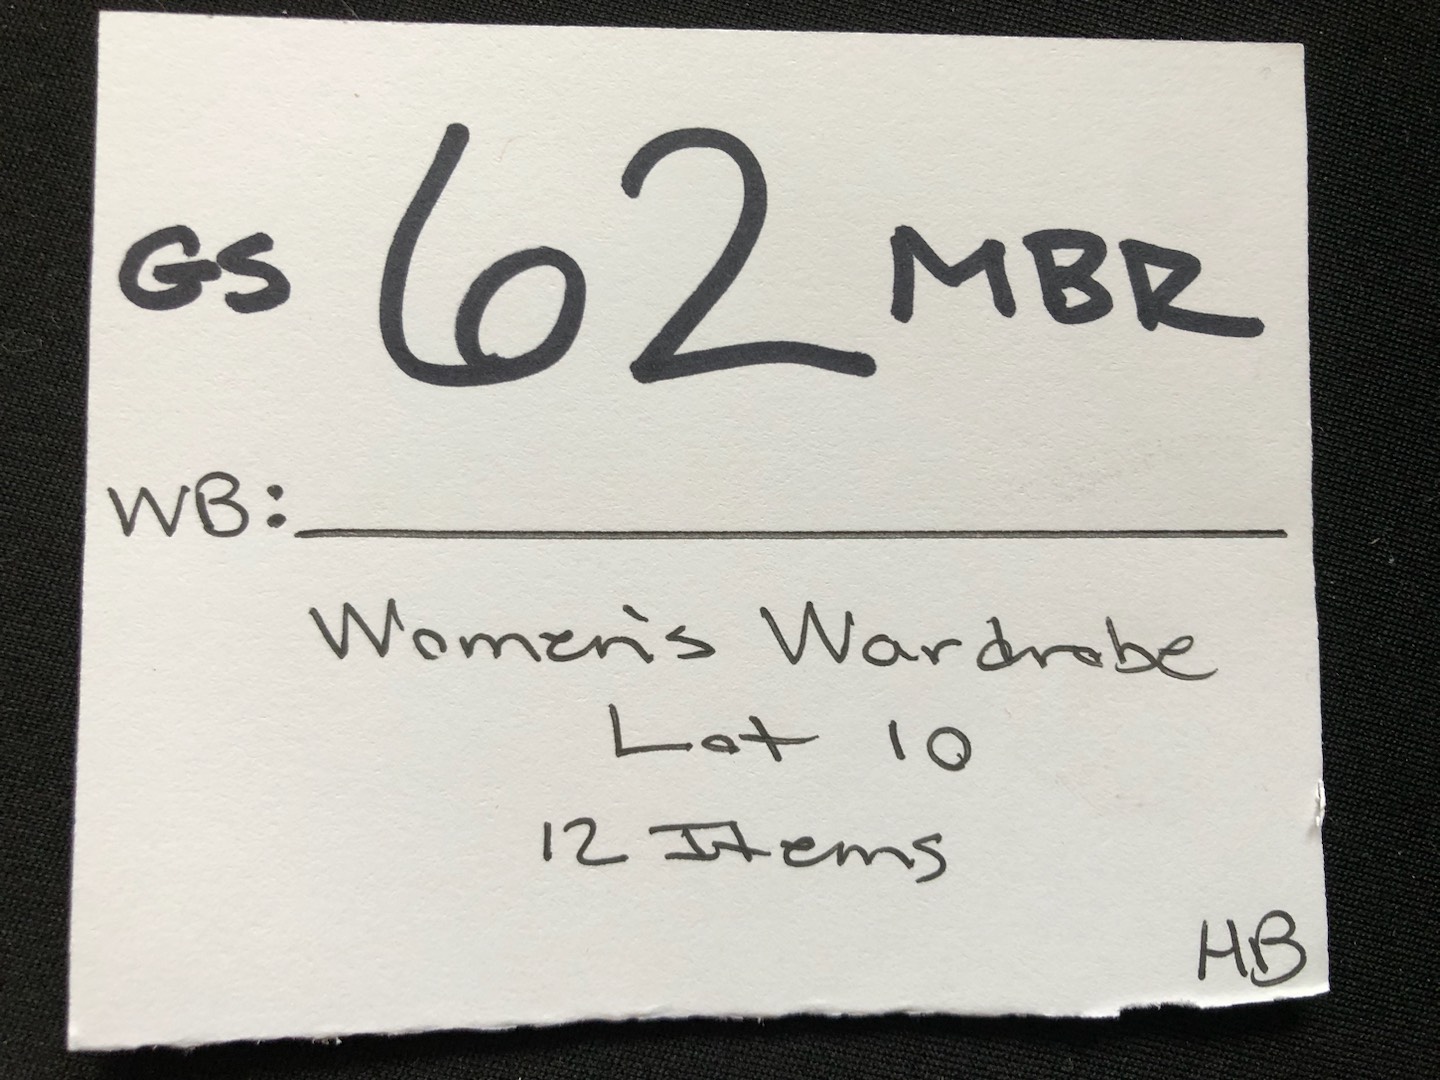 GS 62 MBR
WB:
Women's Wardrobe
Lot 10
12 Items
HB